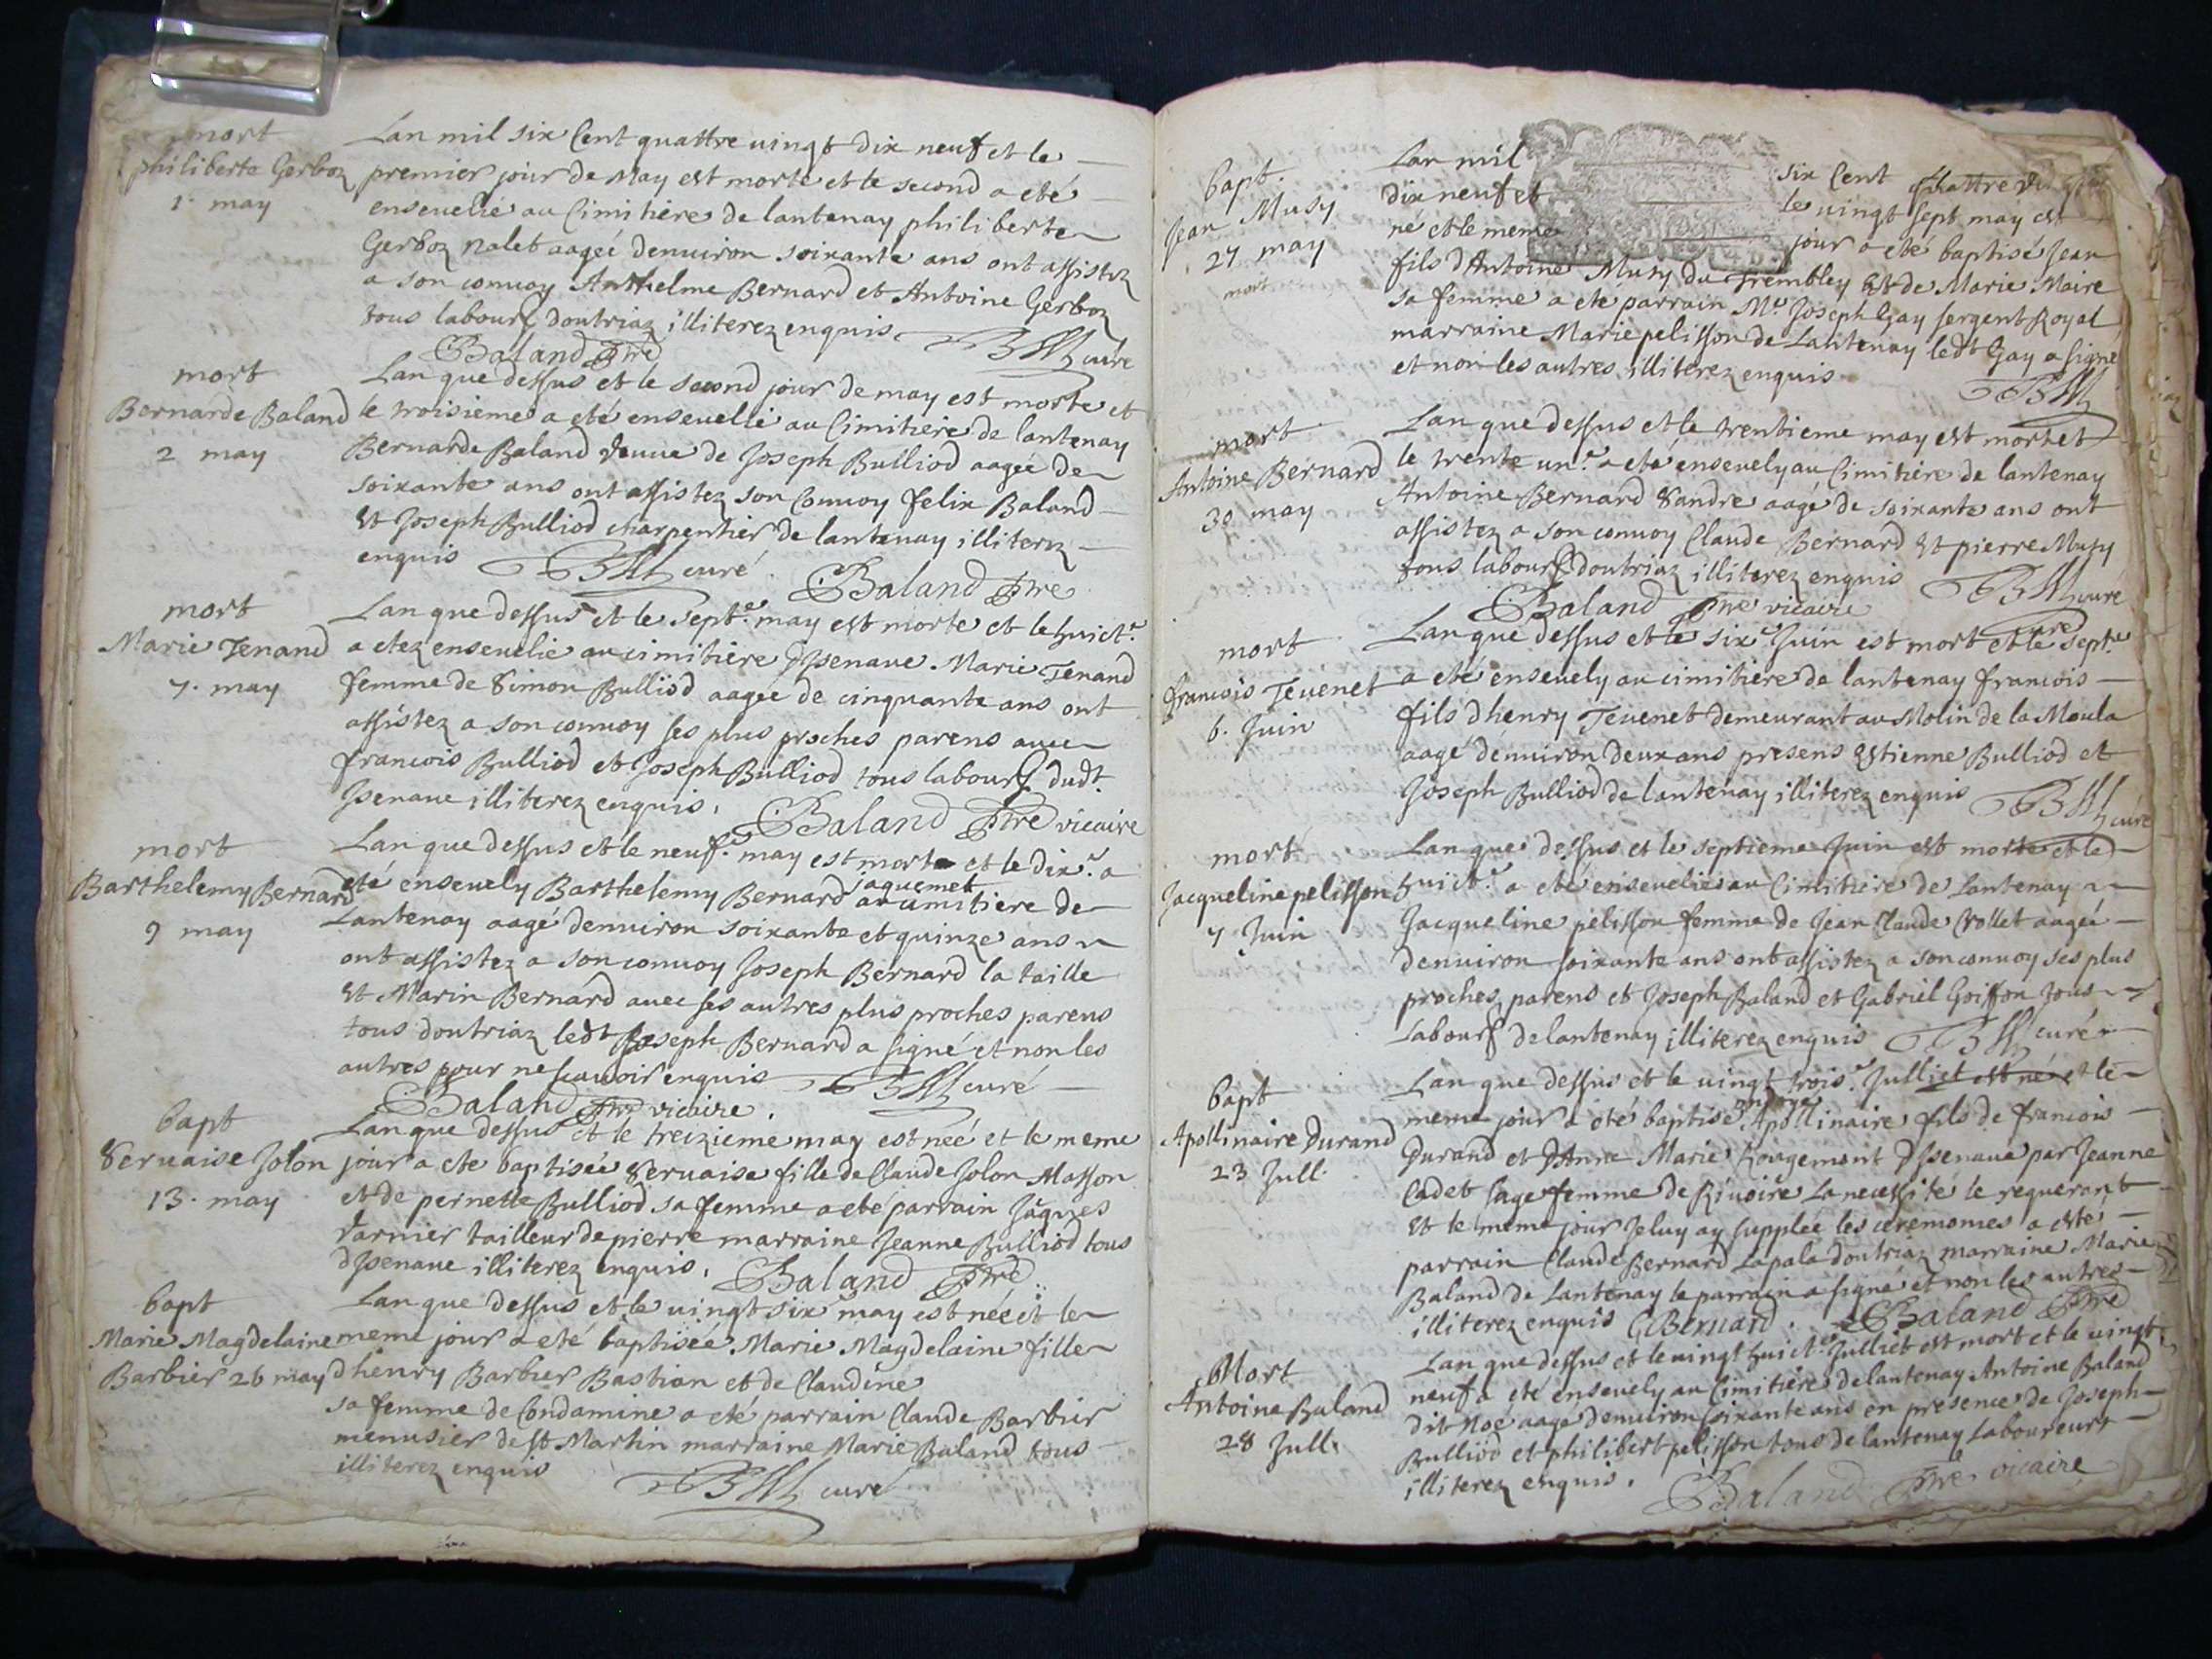 mort
philiberte Gerboz
1. may
Lan mil six Cent quattre uingt dix neuf et le
premier jour de May est morte et le second a eté
enseuelie au Cimitiere de lantenay philiberte
Gerboz nalet aageé denuiron soixante ans ont assistez
a son conuoy Anthelme Bernard et Antoine Gerboz
tous labour doutriaz illiterez enquis
Baland ptre curé
mort
Bernarde Baland
2 may
Lan que dessus et le second jour de may est morte et
le troisieme a eté enseuelie au Cimitiere de lantenay
Bernarde Baland veuue de Joseph Bulliod aageé de
soixante ans ont assistez son Conuoy felix Baland
et Joseph Bulliod charpentier de lantenay illiterez
enquis curé Baland ptre
mort
Marie Tenand
7. may
Lan que dessus et le septe. may est morte et le huicte.
a etez enseuelie au cimitiere dJsenaue Marie Tenand
femme de Simon Bulliod aageé de cinquante ans ont
assistez a son conuoy ses plus proches parens auec
francois Bulliod et Joseph Bulliod tous labour dudt.
Jsenaue illiterez enquis. Baland ptre vicaire
mort
Barthelemy Bernard
9 may
Lan que dessus et le neufe. may est mort et le dixe. a
eté enseuely Barthelemy Bernard jaquemet au cimitiere de
Lantenay aagé denuiron soixante et quinze ans
ont assistez a son conuoy Joseph Bernard la taille
et Marin Bernard auec ses autres plus proches parens
tous doutriaz ledt Joseph Bernard a signé et non les
autres pour ne scauoir enquis curé
Baland ptre vicaire.
bapt
Seruaise Jolon
13. may
Lan que dessus et le treizieme may est neé et le meme
jour a ete baptiseé Seruaise fille de Claude Jolon Masson
et de pernette Bulliod sa femme a eté parrain Jâques
Varnier tailleur de pierre marraine Jeanne Bulliod tous
dJsenaue illiterez enquis. Baland ptre
bapt
Marie Magdelaine
Barbier 26 may
Lan que dessus et le uingt six may est neé et le
meme jour a eté baptiseé Marie Magdelaine fille
dhenry Barbier Bastian et de Claudine
sa femme de Condamine a eté parrain Claude Barbier
menusier de st Martin marraine Marie Baland tous
illiterez enquis curé
bapt.
Jean Musy
27 may
mort
Lan mil six Cent quattre uingt
dix neuf et le uingt sept may est
né et le meme jour a eté baptisé Jean
fils dAntoine Musy du Trembley et de Marie Maire
sa femme a eté parrain Me. Joseph Gay sergent Royal
marraine Marie pelisson de Lantenay ledt Gay a signé
et non les autres illiterez enquis
mort
Antoine Bernard
30 may
Lan que dessus et le trentieme may est mort et
le trente une. a eté enseuely au Cimitiere de lantenay
Antoine Bernard Sandre aagé de soixante ans ont
assistez a son conuoy Claude Bernard et pierre Musy
tous labour doutriaz illiterez enquis curé
Baland ptre vicaire
mort
francois Teuenet
6. Juin
Lan que dessus et le sixe Juin est mort et le septe.
a eté enseuely au cimitiere de lantenay francois
fils dhenry Teuenet demeurant au Molin de la Moula
aagé dénuiron deux ans presens Estienne Bulliod et
Joseph Bulliod de lantenay illiterez enquis curé
mort
Jacqueline pelisson
7 Juin
Lan que dessus et le septieme Juin est morte et le
huicte. a eté enseuelie au Cimitiere de Lantenay
Jacqueline pelisson femme de Jean Claude Vollet aageé
denuiron soixante ans ont assistez a son conuoy ses plus
proches parens et Joseph Baland et Gabriel Goiffon tous
Labour de lantenay illiterez enquis curé
bapt
Apollinaire Durand
23 Jull.
Lan que dessus et le uingt troise. Julliet est né et le
meme jour a eté baptisé ondoye Apollinaire fils de francois
Durand et dAnne Marie Rougemont dJsenaue par Jeanne
Cadet sage femme de Riuoire la necessité le requerant
et le meme jour Je luy ay suppleé les ceremonies a esté
parrain Claude Bernard Lapala doutriaz marraine Marie
Baland de Lantenay le parrain a signé et non les autres
illiterez enquis C Bernard. Baland ptre
Mort
Antoine Baland
28 Jull.
Lan que dessus et le uingt huicte. Julliet est mort et le uingt
neuf a eté enseuely au Cimitiere de lantenay Antoine Baland
dit Noé aagé denuiron soixante ans en presence de Joseph
Bulliod et philibert pelisson tous de lantenay Laboureurs
illiterez enquis. Baland ptre vicaire